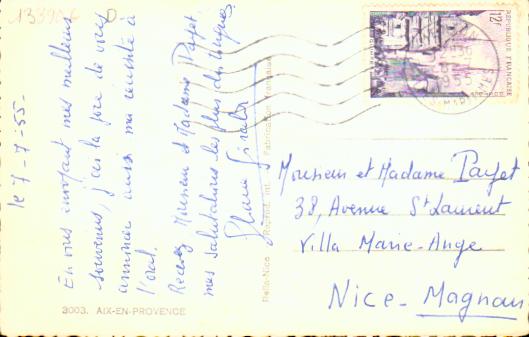 133906
le 7-7-55.
En vous envoyant mes meilleurs
souvenirs, j'ai la joie de vous
annoncer aussi ma réussite à
l'oral.
Recevez Monsieur et Madame Payet
mes salutations les plus distinguées
3003. AIX-EN-PROVENCE
Fabrication Française
12F
REPUBLIQUE FRANÇAISE
Monsieur et Madame Payet
38, Avenue St Laurent
Villa Marie-Ange
Nice - Magnan